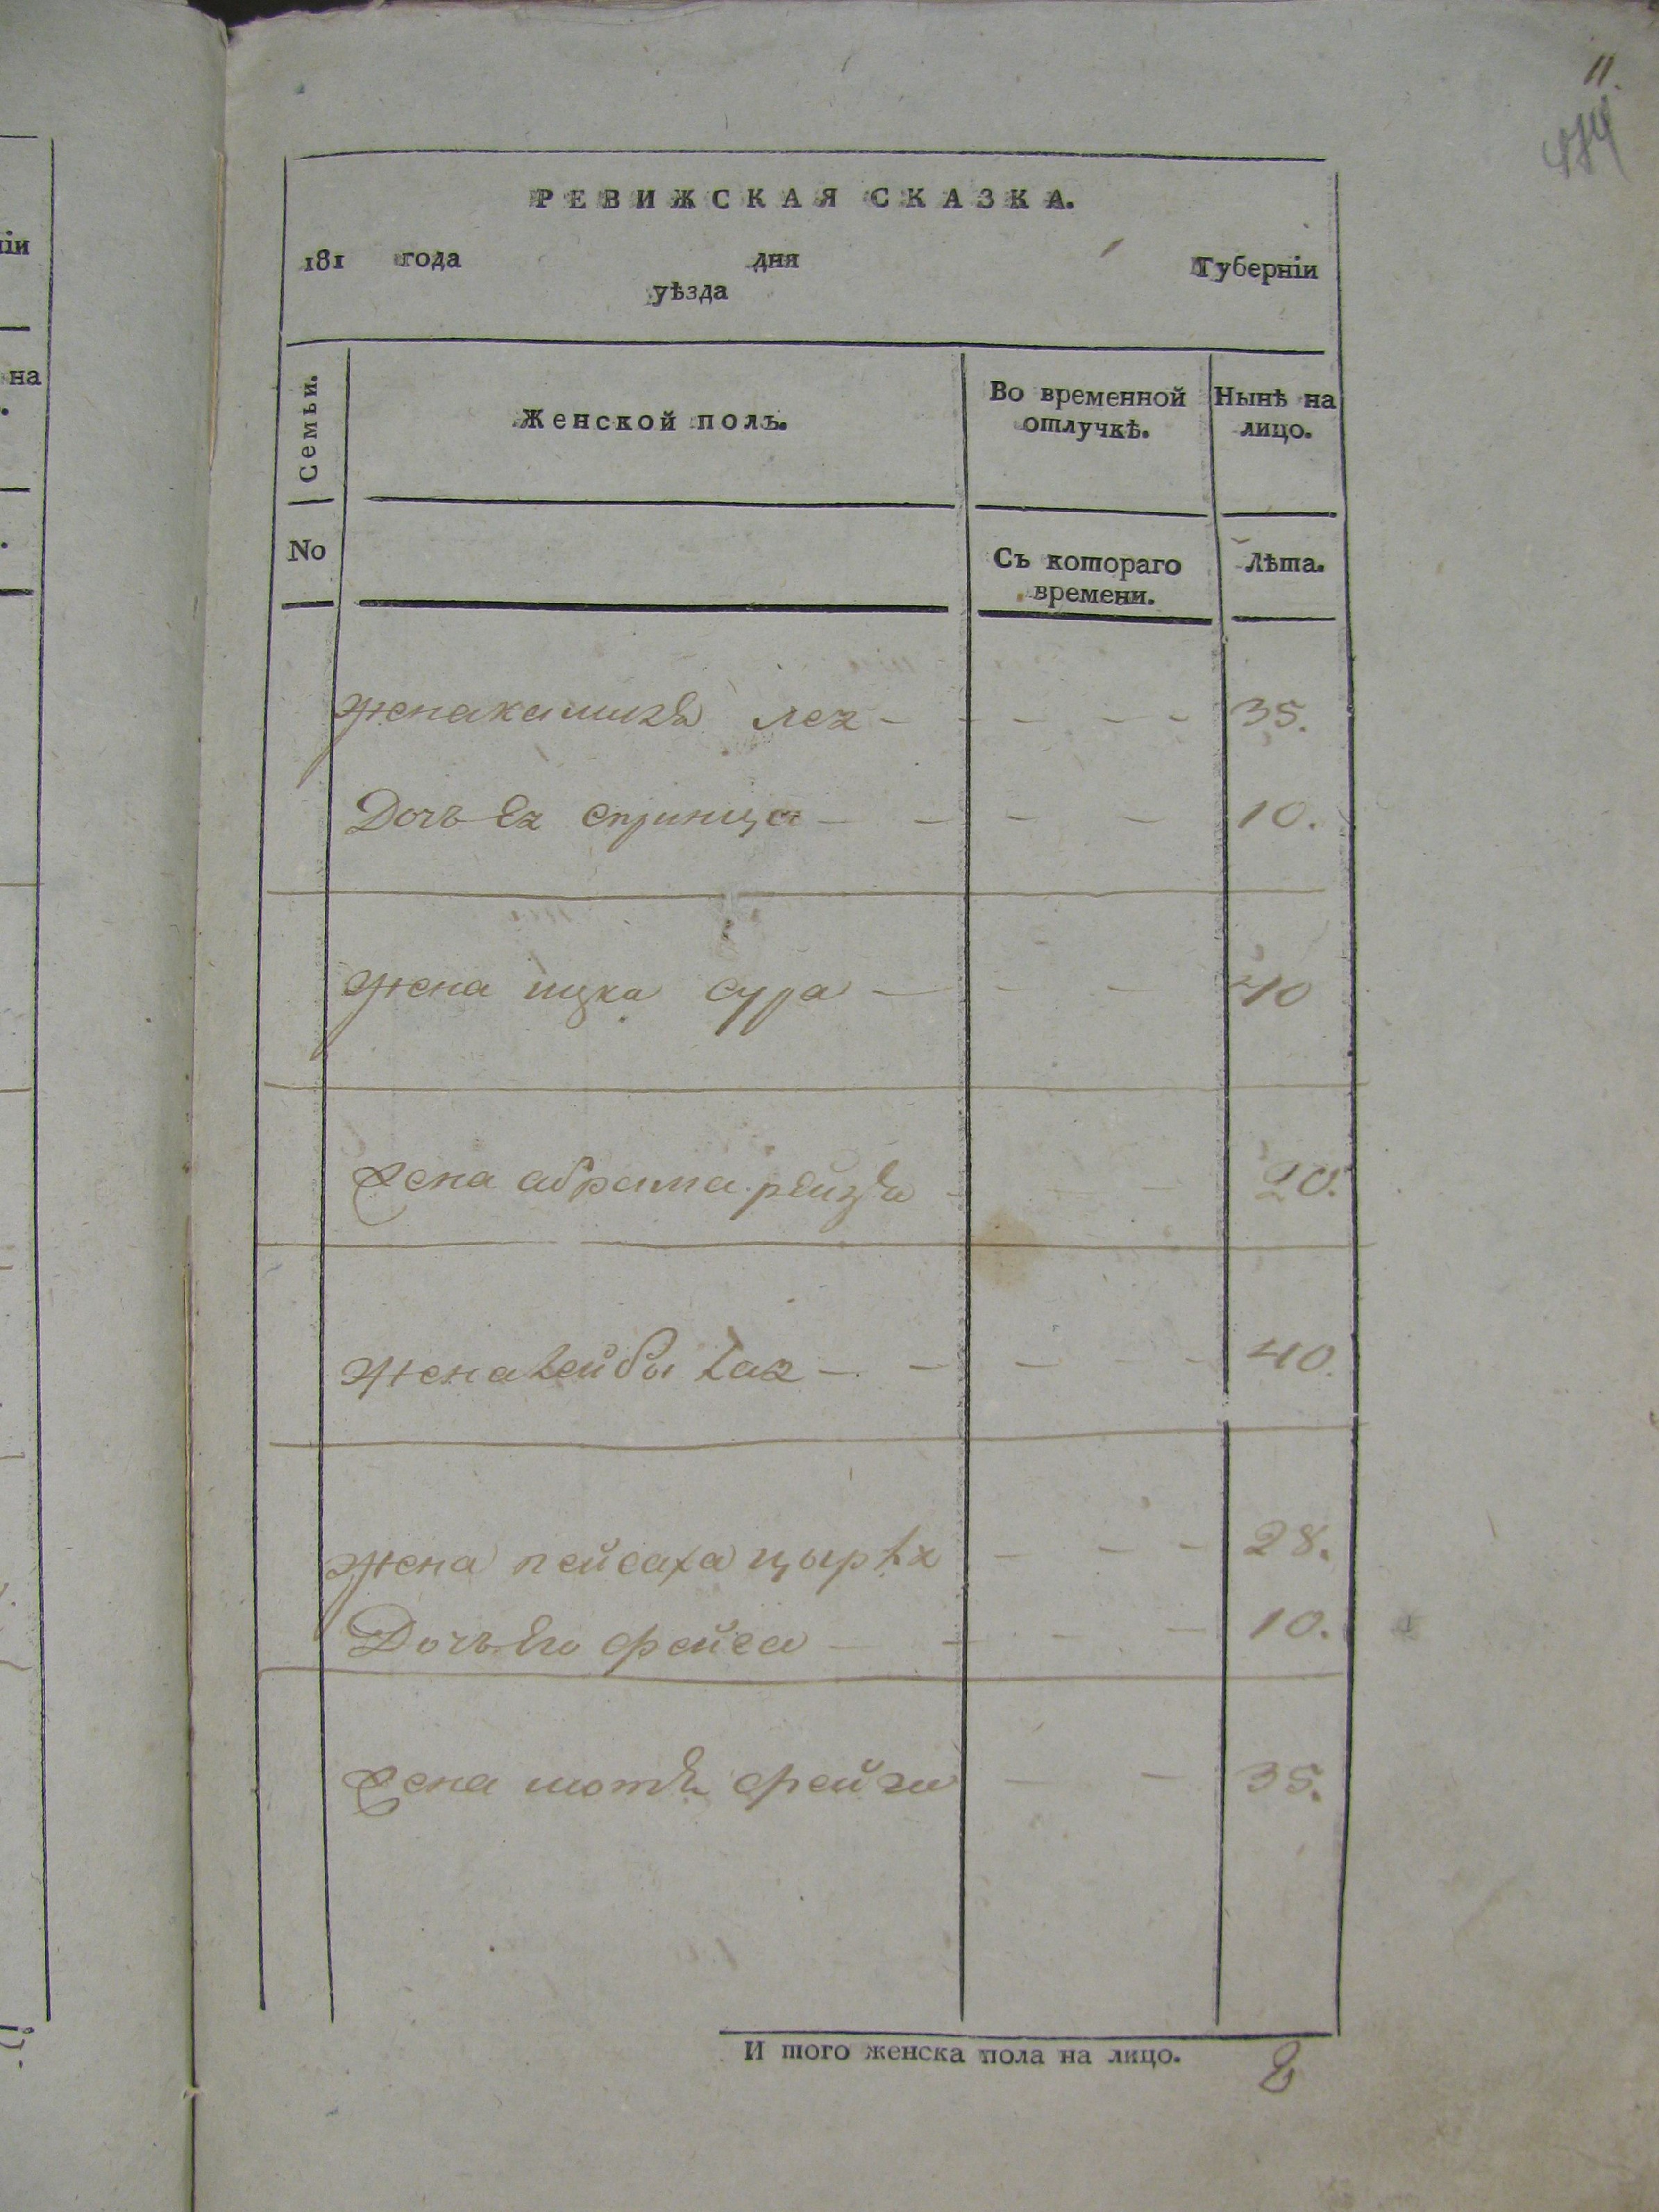 11.
474
РЕВИЖСКАЯ СКАЗКА.
181 года дня Губерніи
уѣзда
Семьи.
Женской полъ.
Во временной отлучкѣ.
Нынѣ на лицо.
No
Съ котораго времени.
Лѣта.
жена лея - - - - 35.
Дочь Ея спринца - - - - 10.
жена ицка сура - - - 40
жена абрама рейзя - - - 20.
жена лейбы хая - - - - - 40.
жена пейсаха цырля - - - 28.
Дочь Его фейга - - - - 10.
жена мотя фейга - - 35.
И того женска пола на лицо. 8
іи
на